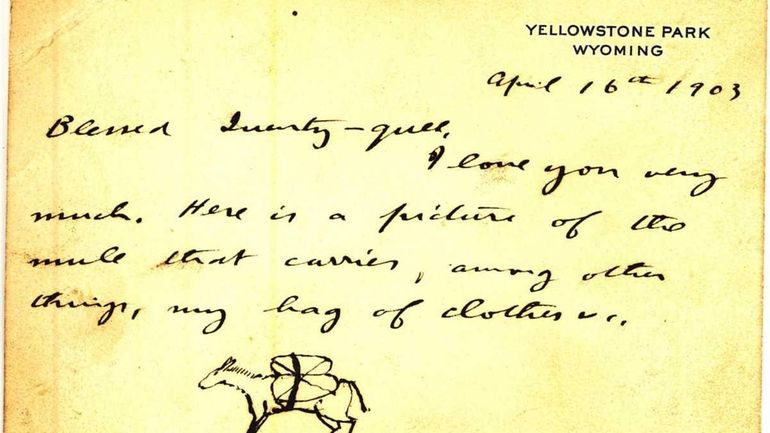 YELLOWSTONE PARK
WYOMING
April 16th 1903
Blessed Quenty-quee,
I love you very
much. Here is a picture of the
mule that carries, among other
things, my bag of clothes &c.